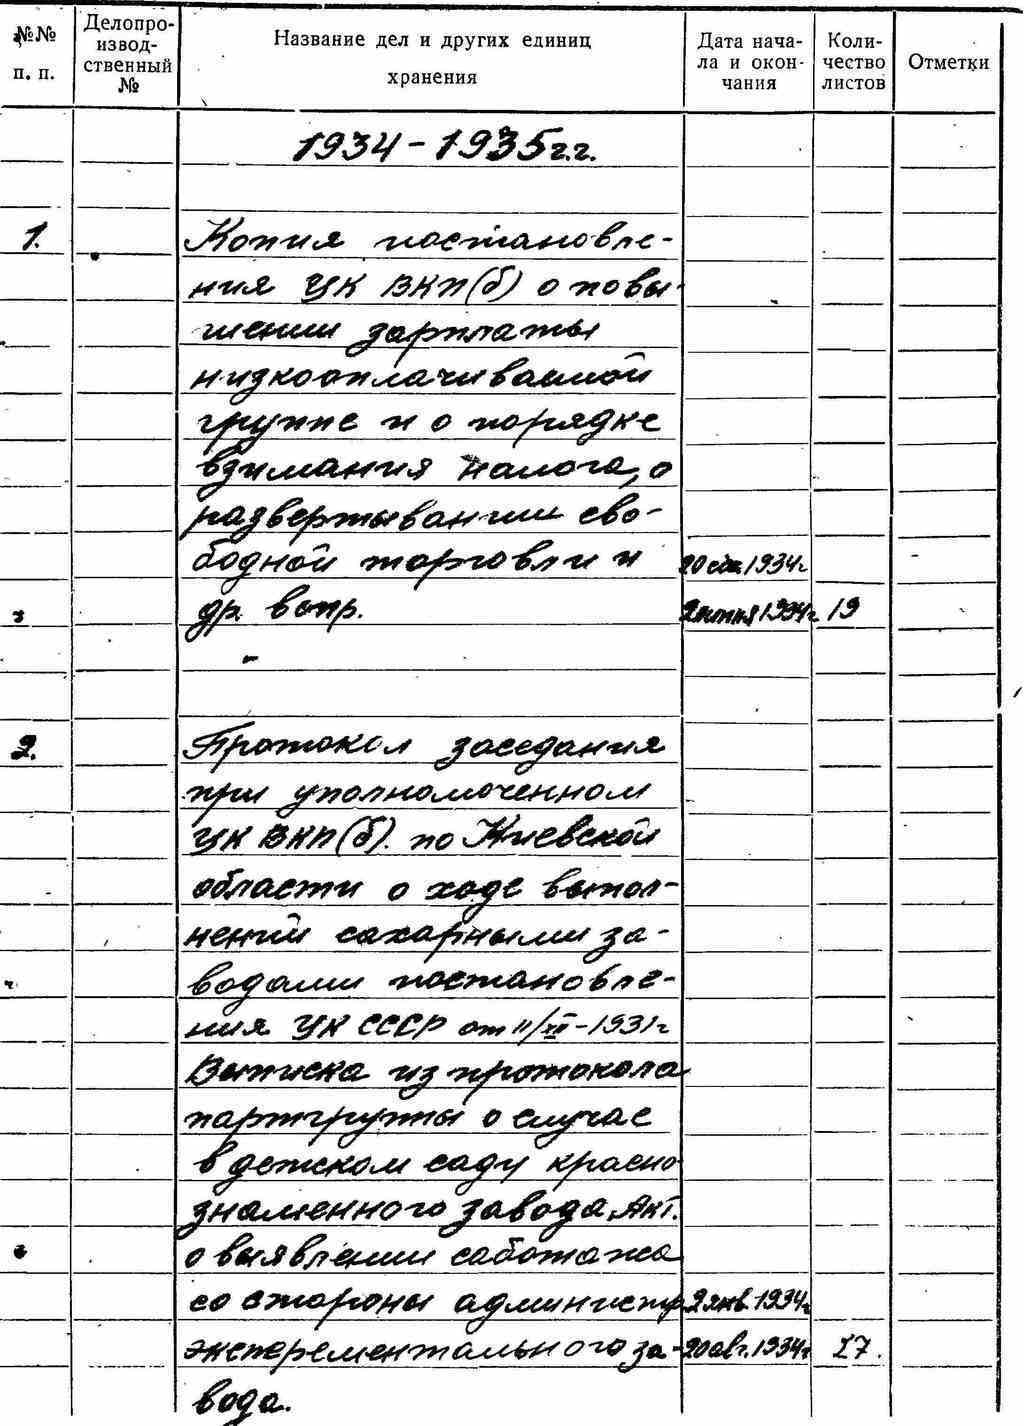 №№ п. п.
Делопроизвод-ственный №
Название дел и других единиц хранения
Дата нача-ла и окон-чания
Коли-чество листов
Отметки
1934-1935г.г.
1. Копия постановле-
ния ЦК ВКП(б) о повы-
шении зарплаты
низкооплачиваемой
группе и о порядке
взимания налога, о
развертывании сво-
бодной торговли и 20 1934г
др. вопр. 1934г. 19
2. Протокол заседания
при уполномоченном
ЦК ВКП(б). по Киевской
области о ходе выпол-
нений сахарными за-
водами постановле-
ния ЦК СССР от 11/XII-1931г
Выписка из протокола
партгруппы о случае
в детском саду красно
знаменного завода, Акт.
о выявлении саботажа
со стороны администр 2 янв. 1934г
эксперементального за- 20 авг. 1934г 27.
вода.